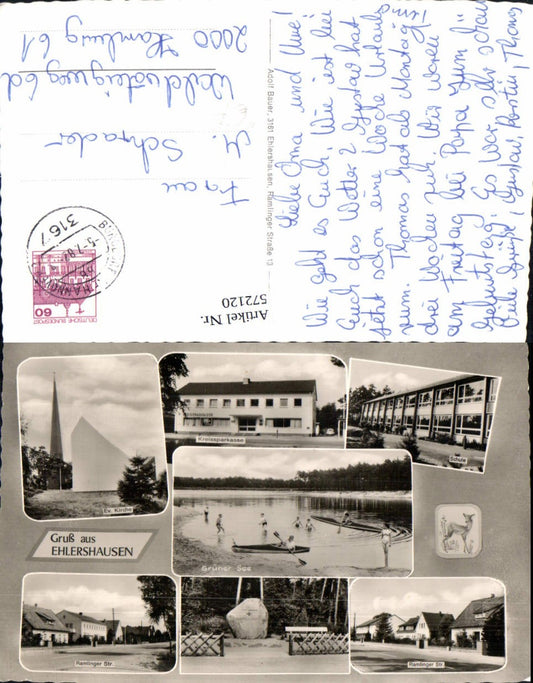 Liebe Oma und Uwe!
Wie geht es Euch. Wie ist bei
Euch das Wetter? Gustav hat
jetzt schon eine Woche Urlaub
rum. Thomas hat ab Montag
drei Wochen zu. Wir waren
am Freitag bei Papa zum
Geburtstag. Es war sehr schön
Viele Grüße, Gustav, Kerstin, Thomas
Adolf Bauer, 3161 Ehlershausen, Ramlinger Straße 13
Frau
M. Schrader
2000 Hamburg 61
3167
60
DEUTSCHE BUNDESPOST
Artikel Nr.
572120
Ev. Kirche
Kreissparkasse
Schule
Gruß aus
EHLERSHAUSEN
Grüner See
Ramlinger Str.
Ramlinger Str.